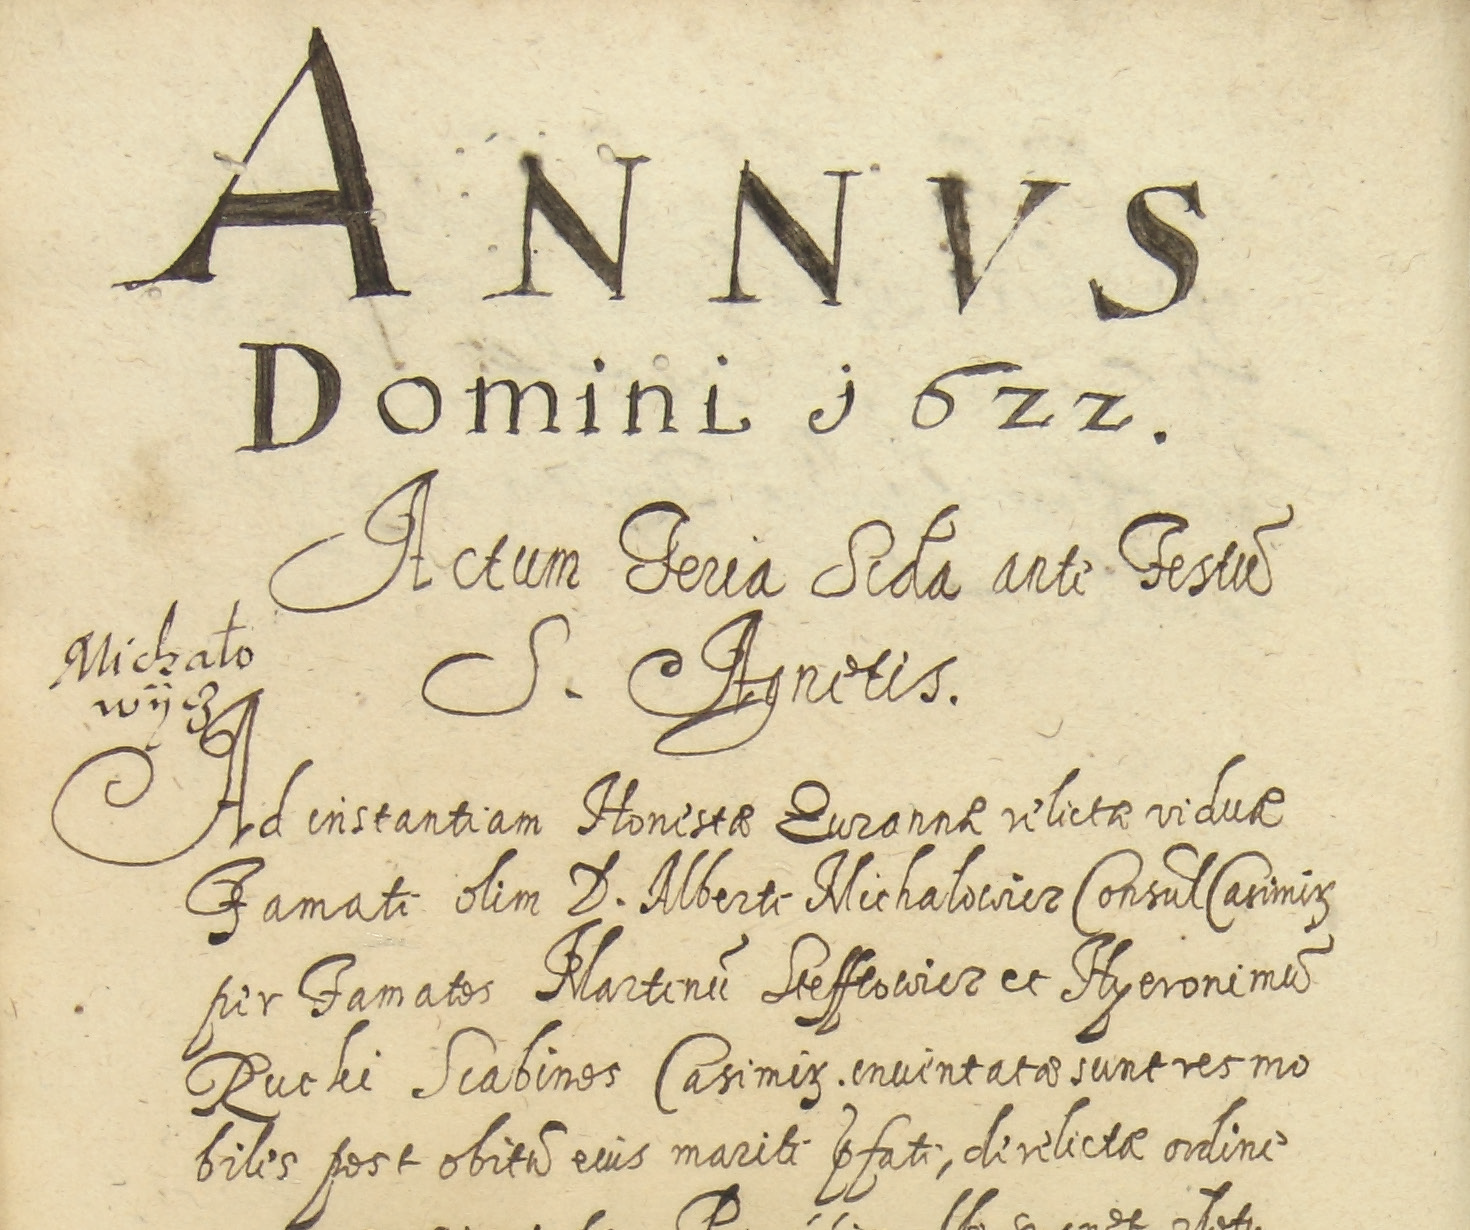 ANNVS
Domini 1622.
Actum Feria Scda ante Festũ
S. Agnetis.
Michało
wÿcz
Ad instantiam Honestæ Zuzannæ relictæ viduæ
Famati olim D. Alberti Michalowicz Consul Casimir
per Famatos Martinũ Steffkowicz et Hyeronimũ
Pucki Scabinos Casimir. inuentatæ sunt res mo
biles post obitũ eius mariti pfati, derelictæ ordine